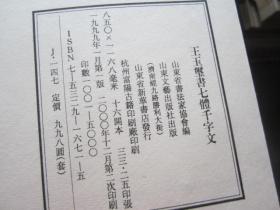 王玉璽書七體千字文
山東省書法家協會編
山東文藝出版社出版
(濟南經九路勝利大街)
山東省新華書店發行
杭州富陽古籍印刷廠印刷
八五〇×一一六八毫米 十六開本 三三·二五印張
一九九九年一月第一版 二〇〇〇年十二月第二次印刷
印數〇〇一—五〇〇〇
ISBN七—五三二九—一六七一—五
J·一四七 定價 九九八圓(套)